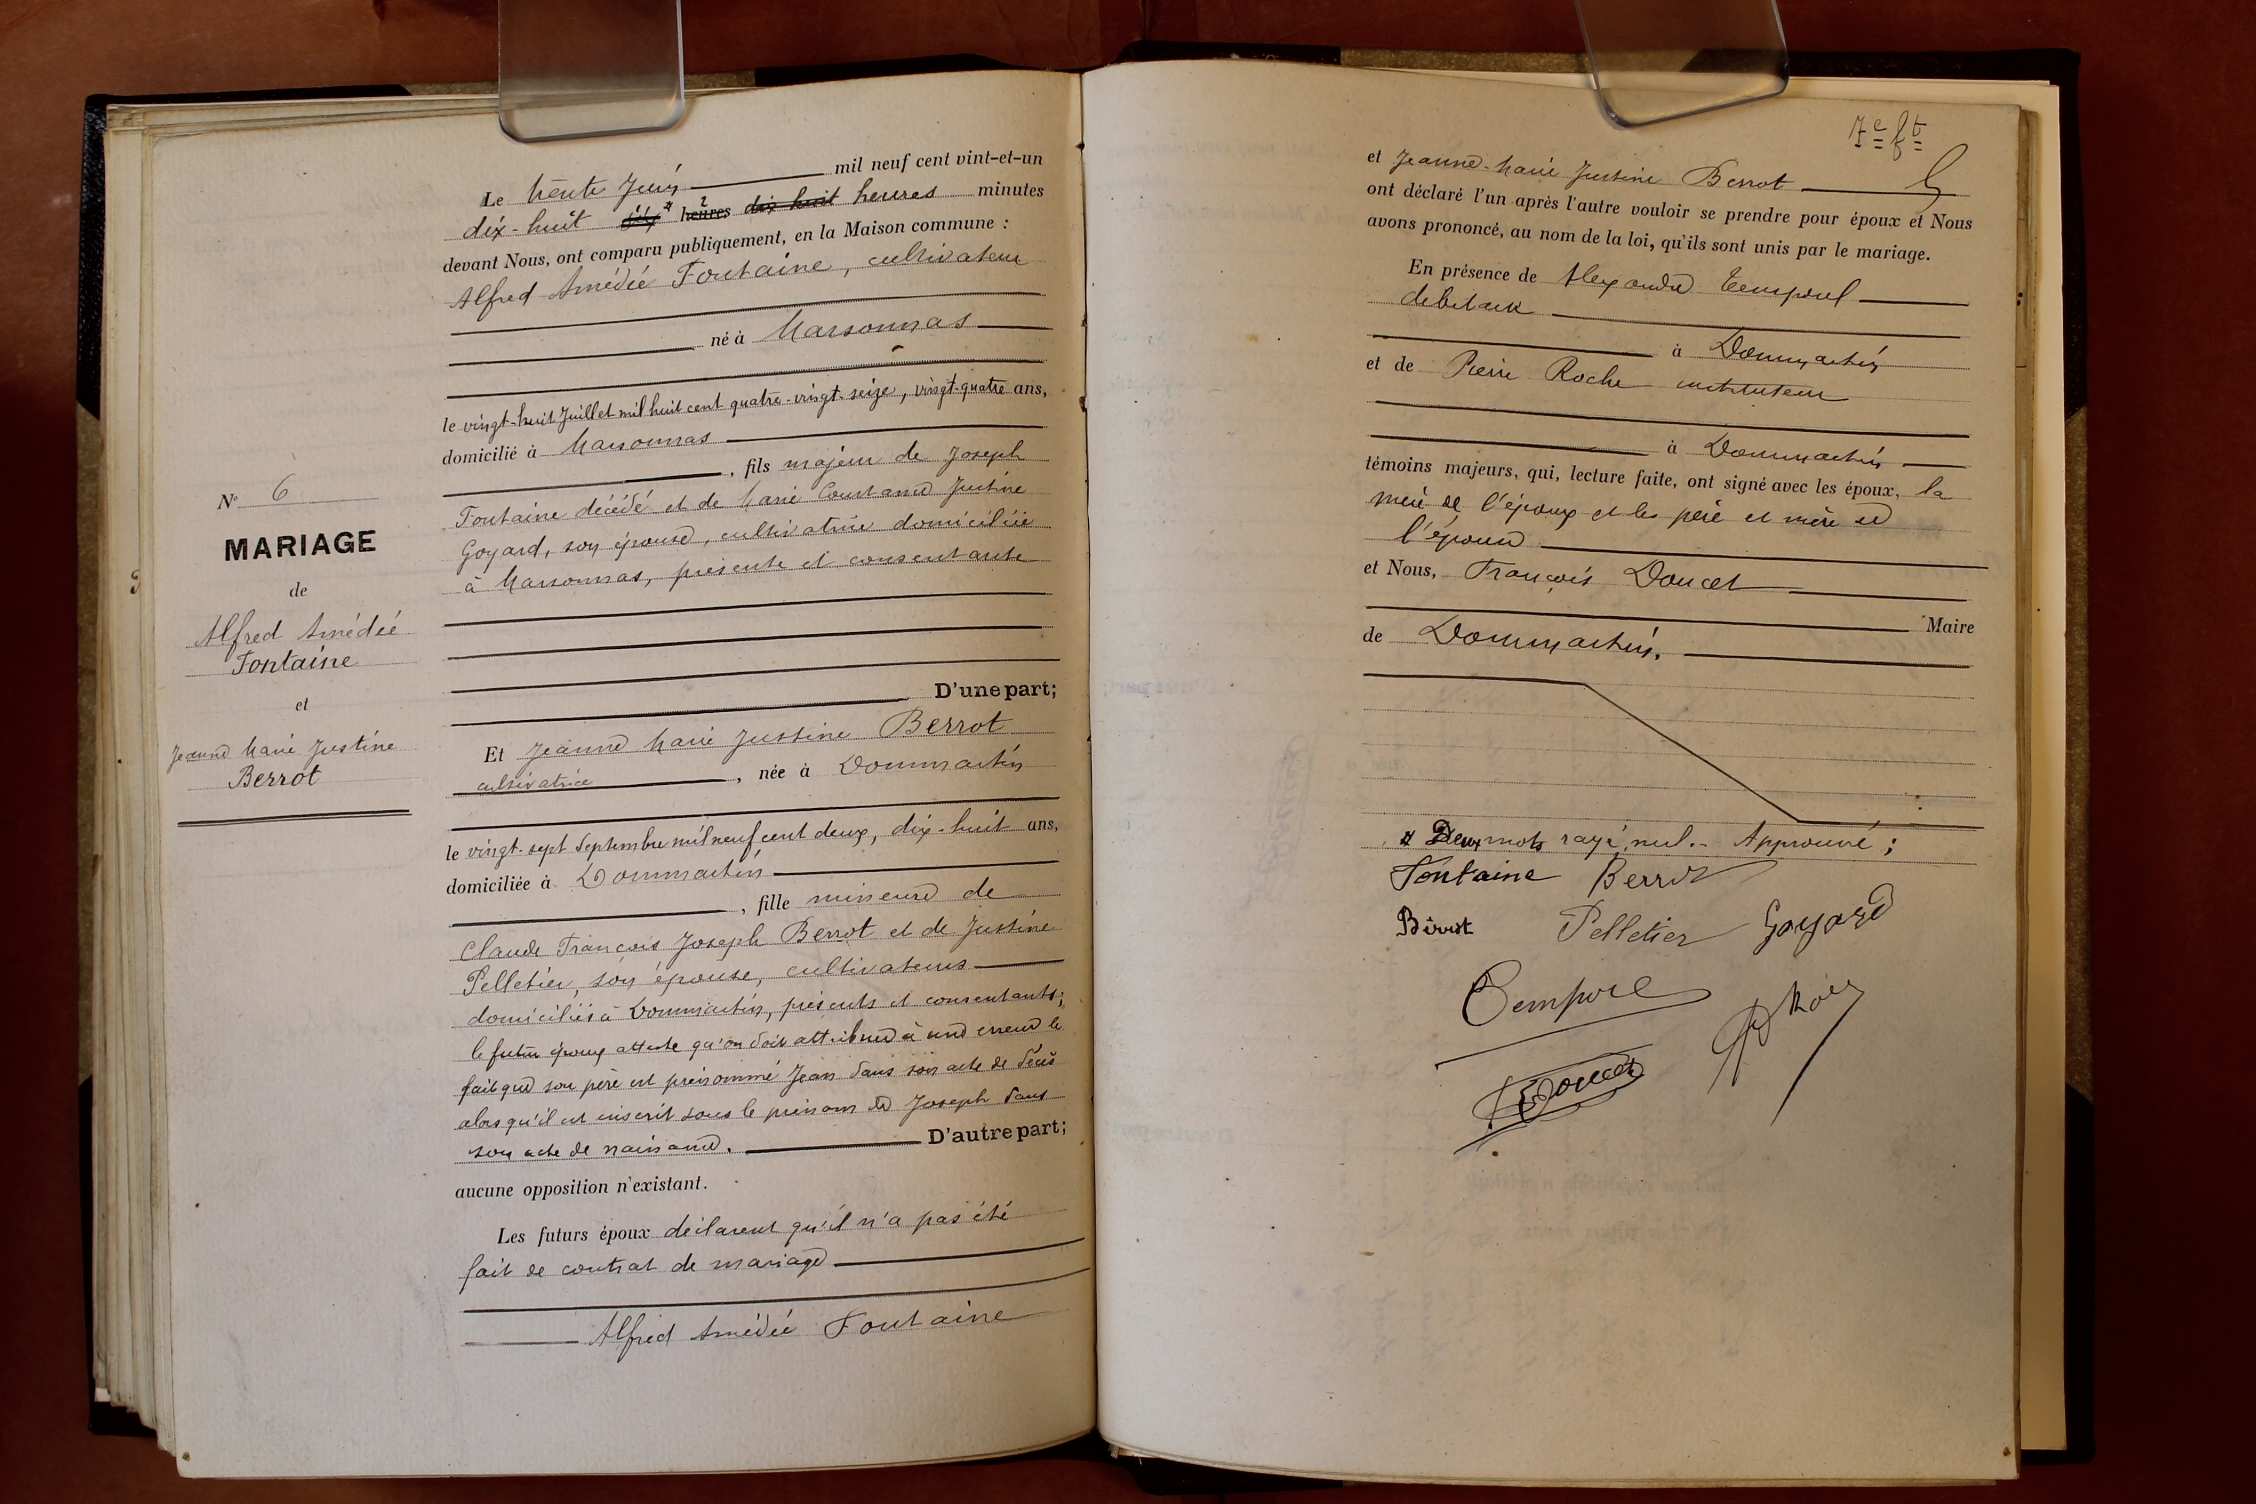 Le trente Juin mil neuf cent vint-et-un
dix-huit six heures dix huit heures minutes
devant Nous, ont comparu publiquement, en la Maison commune :
Alfred Amédée Fontaine, cultivateur
né à Marsonnas
le vingt-huit Juillet mil huit cent quatre-vingt-seize, vingt-quatre ans,
domicilié à Marsonnas
, fils majeur de Joseph
Fontaine décédé et de Marie Constance Justine
Goyard, son épouse, cultivatrice domiciliée
à Marsonnas, présente et consentante
D'une part;
Et Jeanne Marie Justine Berrot
cultivatrice, née à Dommartin
le vingt-sept Septembre mil neuf cent deux, dix-huit ans,
domiciliée à Dommartin
, fille mineure de
Claude François Joseph Berrot et de Justine
Pelletier, son épouse, cultivateurs
domiciliés à Dommartin, présents et consentants;
le futur époux atteste qu'on doit attribuer à une erreur le
fait que son père est prénommé Jean dans son acte de décès
alors qu'il est inscrit sous le prénom de Joseph dans
son acte de naissance. D'autre part;
aucune opposition n'existant.
Les futurs époux déclarent qu'il n'a pas été
fait de contrat de mariage
Alfred Amédée Fontaine
N° 6
MARIAGE
de
Alfred Amédée
Fontaine
et
Jeanne Marie Justine
Berrot
7e ft
et Jeanne-Marie Justine Berrot
ont déclaré l'un après l'autre vouloir se prendre pour époux et Nous
avons prononcé, au nom de la loi, qu'ils sont unis par le mariage.
En présence de Alexandre Temporel
débitant
à Dommartin
et de Pierre Roche instituteur
à Dommartin
témoins majeurs, qui, lecture faite, ont signé avec les époux, la
mère de l'époux et les père et mère de
l'épouse
et Nous, François Doucet
Maire
de Dommartin.
Deux mots rayé, nul. - Approuvé ;
Fontaine Berrot
Berrot Pelletier Goyard
Doucet